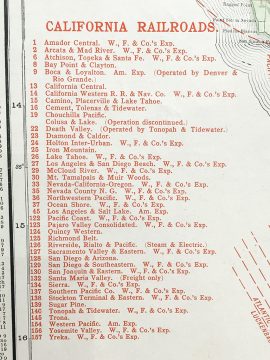 CALIFORNIA RAILROADS.
1 Amador Central. W., F. & Co's Exp.
2 Arcata & Mad River. W., F. & Co.'s Exp.
6 Atchison, Topeka & Santa Fe. W., F. & Co.'s Exp.
8 Bay Point & Clayton.
9 Boca & Loyalton. Am. Exp. (Operated by Denver &
Rio Grande.)
13 California Central.
14 California Western R. R. & Nav. Co. W., F. & Co.'s Exp.
15 Camino, Placerville & Lake Tahoe.
17 Cement, Tolenas & Tidewater.
19 Chouchilla Pacific.
Colusa & Lake. (Operation discontinued.)
22 Death Valley. (Operated by Tonopah & Tidewater.)
23 Diamond & Caldor.
24 Holton Inter-Urban. W., F. & Co.'s Exp.
25 Iron Mountain.
26 Lake Tahoe. W., F. & Co.'s Exp.
27 Los Angeles and San Diego Beach. W., F. & Co.'s Exp.
29 McCloud River. W., F. & Co.'s Exp.
30 Mt. Tamalpais & Muir Woods.
33 Nevada-California-Oregon. W., F. & Co.'s Exp.
33 Nevada County N. G. W., F. & Co.'s Exp.
36 Northwestern Pacific. W., F. & Co.'s Exp.
37 Ocean Shore. W., F. & Co.'s Exp.
65 Los Angeles & Salt Lake. Am. Exp.
122 Pacific Coast. W., F. & Co.'s Exp.
123 Pajaro Valley Consolidated. W., F. & Co.'s Exp.
124 Quincy Western.
125 Richmond Belt.
126 Riverside, Rialto & Pacific. (Steam & Electric.)
127 Sacramento Valley & Eastern. W., F. & Co.'s Exp.
128 San Diego & Arizona.
129 San Diego & Southeastern. W., F. & Co.'s Exp.
130 San Joaquin & Eastern. W., F. & Co.'s Exp.
132 Santa Maria Valley. (Freight only)
134 Sierra. W., F. & Co.'s Exp.
137 Southern Pacific Co. W., F. & Co.'s Exp.
138 Stockton Terminal & Eastern. W., F. & Co.'s Exp.
139 Sugar Pine.
140 Tonopah & Tidewater. W., F. & Co.'s Exp.
145 Trona.
154 Western Pacific. Am. Exp.
156 Yosemite Valley. W., F. & Co.'s Exp.
157 Yreka. W., F. & Co.'s Exp.
14
15
16